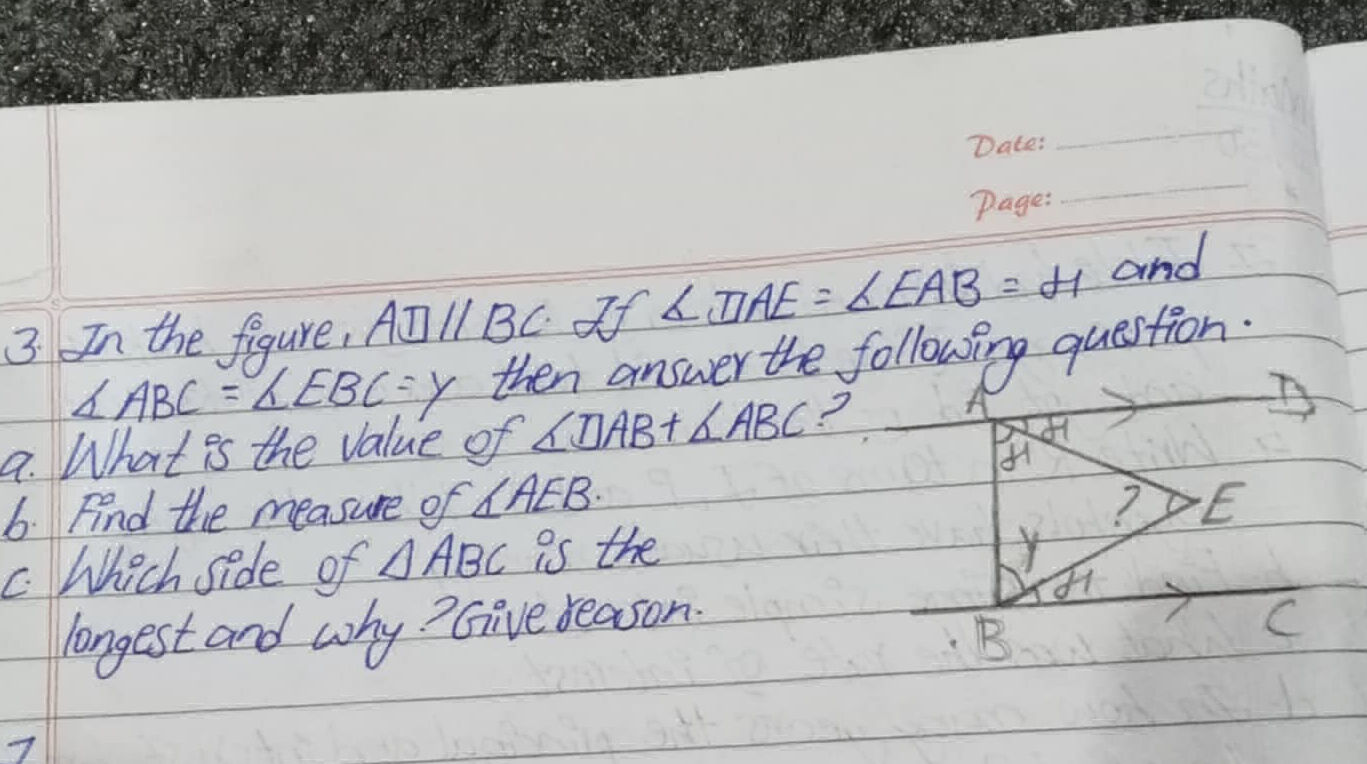 Date:
Page:
3. In the figure, AD // BC. If ∠DAE = ∠EAB = x and
∠ABC = ∠EBC = y then answer the following question.
a. What is the value of ∠DAB + ∠ABC?
b. Find the measure of ∠AEB.
c. Which side of ΔABC is the
longest and why? Give reason.
A D
x
x
? E
y
x
B C